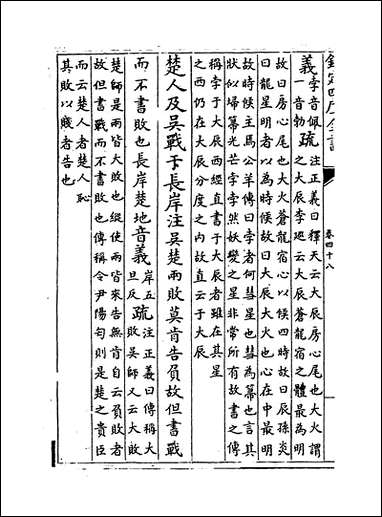 欽定四庫全書
卷四十八
義孛音佩
一音勃疏注正義曰釋天云大辰房心尾也大火謂
之大辰李巡云大辰蒼龍宿之體最為明
故曰房心尾也大火蒼龍宿心以候四時故曰辰孫炎
曰龍星明者以為時候故曰大辰大火也心在中最明
故時候主焉公羊傳曰孛者何彗星也彗為箒也言其
狀似埽箒光芒孛孛然妖變之星非常所有故書之傳
稱孛于大辰西經直書于大辰者雖在其星
之西仍在大辰分度之内故直云于大辰
楚人及吳戰于長岸注吳楚兩敗莫肯告負故但書戰
而不書敗也長岸楚地音義岸五
旦反疏注正義曰傳稱大
敗吳師又云大敗
楚師是兩皆大敗也縱使兩皆來告無肯自云負敗者
故但書戰而不書敗也傳稱令尹陽匄則是楚之貴臣
而云人者楚人恥
其敗以賤者告也